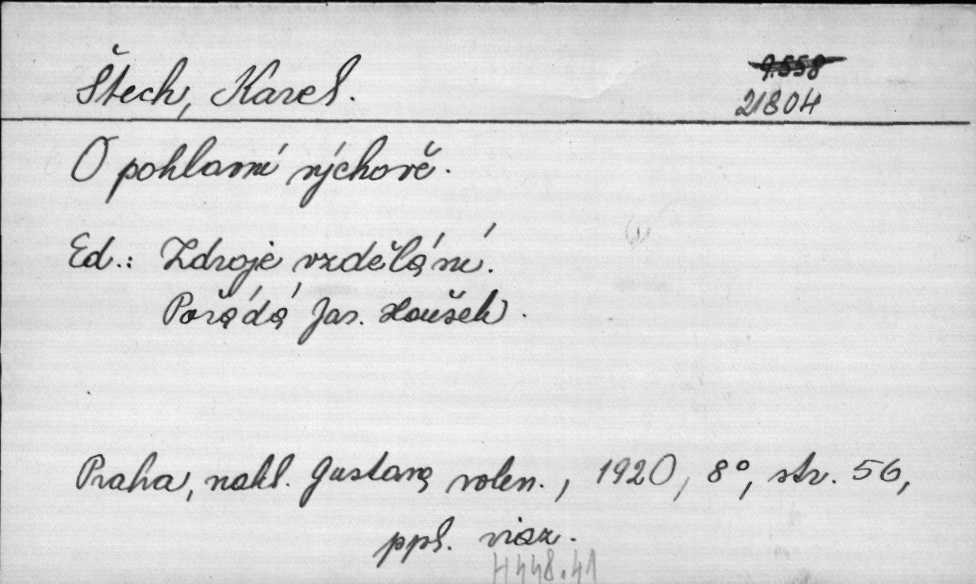 Štech, Karel.
9.558
21804
O pohlavní výchově.
Ed.: Zdroje vzdělání.
Pořádá Jar. Houšek.
Praha, nakl. Gustava volen., 1920, 8°, str. 56,
ppl. viaz.
H 448.41